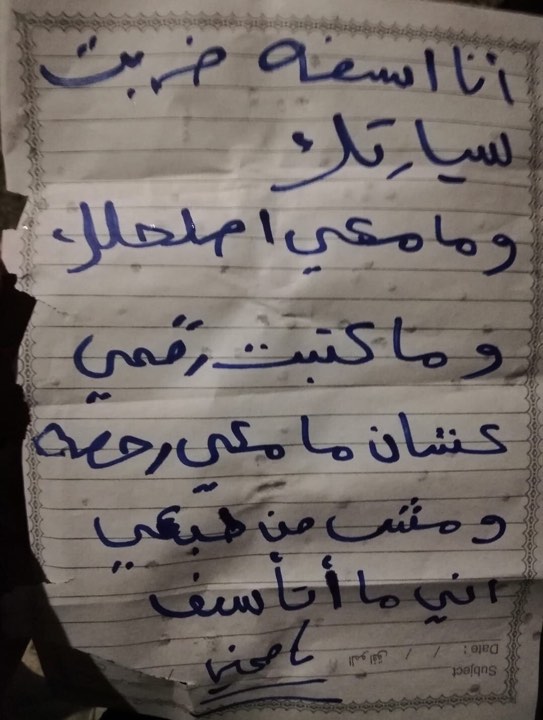 أنا اسفه ضربت
سيارتك
وما معي اصلحلك
وما كتبت رقمي
عشان ما معي رخصه
ومش من طبعي
اني ما أتأسف
سامحني
Date: / / الموافق / /
Subject